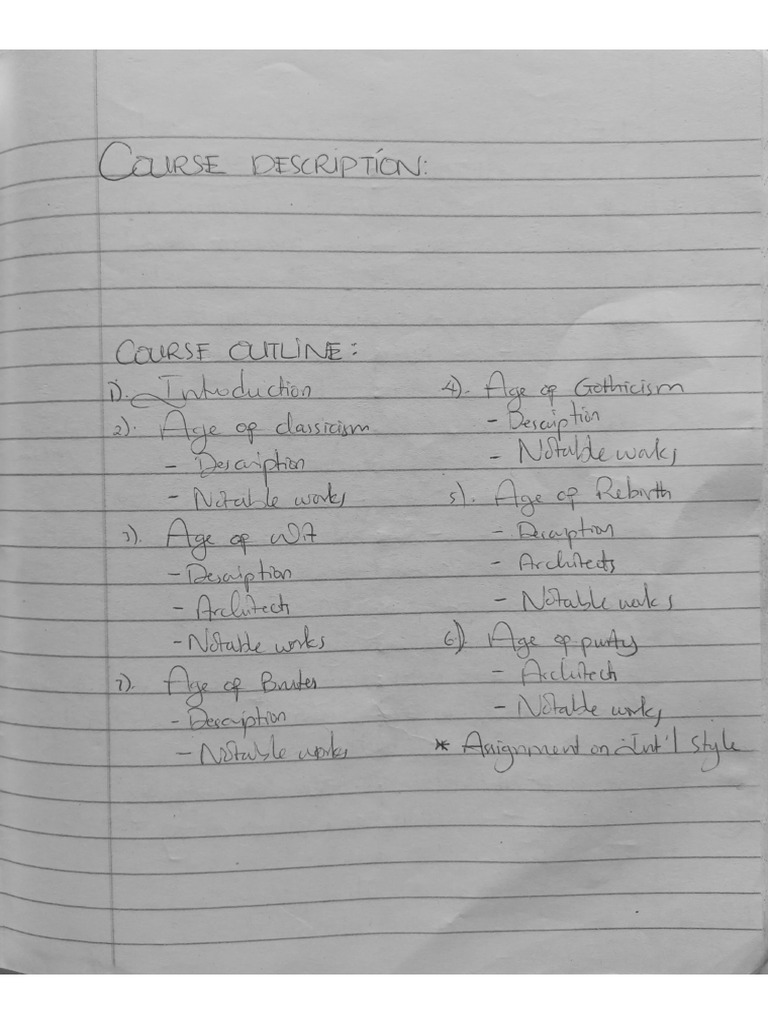 COURSE DESCRIPTION:
COURSE OUTLINE:
1). Introduction
2). Age of classicism
- Description
- Notable works
3). Age of Wit
- Description
- Architech
- Notable works
7). Age of Brutes
- Description
- Notable works
4). Age of Gothicism
- Description
- Notable works
5). Age of Rebirth
- Description
- Architects
- Notable works
6). Age of purity
- Architech
- Notable works
* Assignment on Int'l style